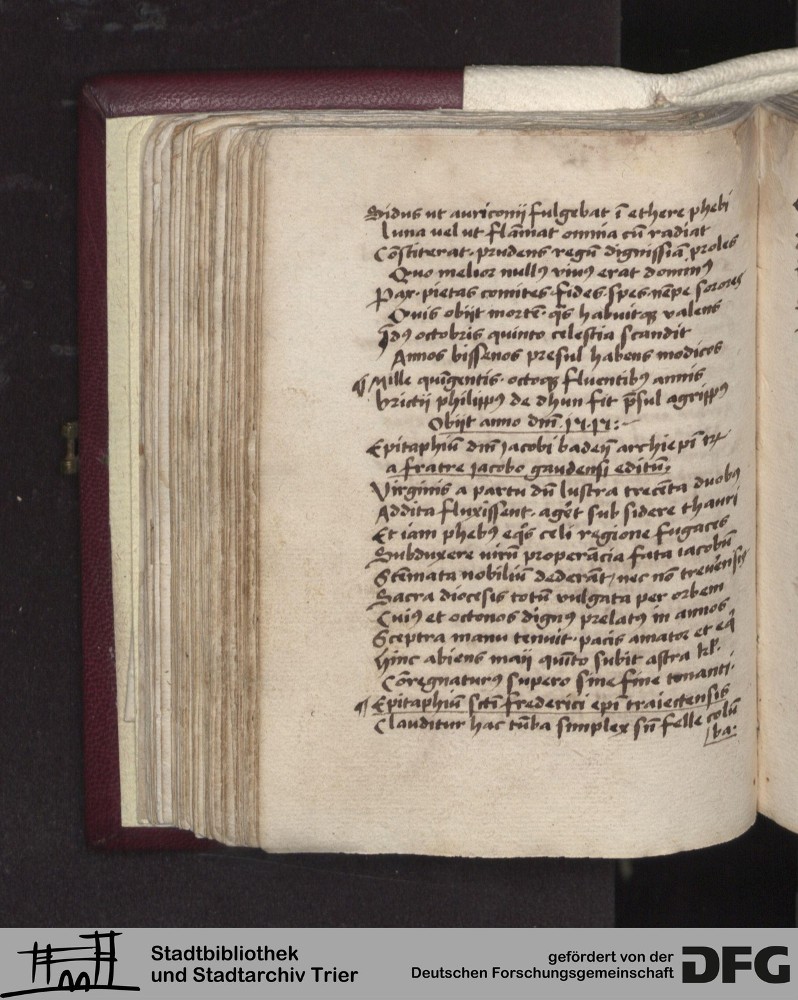 Sidus ut auriconij fulgebat ī ethere phebi
Luna uel ut flāmat omnia cū radiat
Cōstiterat prudens regū dignissiā proles
Quo melior nullꝰ viuꝰ erat dominꝰ
Pax pietas comites fides spes nēpe sorores
Quis obijt mortē qs habuitqꝫ valens
Idꝰ octobris quinto celestia scandit
Annos bissenos presul habens modicos
¶ Mille quīgentis octoqꝫ fluentibꝰ annis
brictii philippꝰ de dhun fit p̄sul agrippꝰ
Obijt anno dm̄
Epitaphiū dm̄ Jacobi badeñ archiepī
a fratre Jacobo gaudensi editū
Virginis a partu dū lustra trecēta duobꝰ
Addita fluxissent agēt sub sidere thauri
Et iam phebꝰ eqs celi regione fugaces
Subduxere uirū properācia fata iacobū
Stēmata nobiliū dederāt nec nō
Sacra diocesis totū vulgata per orbem
Cuiꝰ et octonos dignꝰ prelatꝰ in annos
Sceptra manu tenuit pacis amator et eq
hinc abiens maij quīto subit astra kl.
Cōregnaturꝰ supero sine fine tonanti.
¶ Epitaphiū scti frederici epi traiectensis
Clauditur hac tūba simplex sn̄ felle colū
ba.
Stadtbibliothek
und Stadtarchiv Trier
gefördert von der
Deutschen Forschungsgemeinschaft
DFG